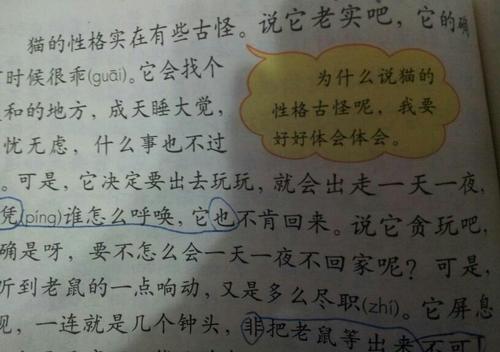 猫的性格实在有些古怪。说它老实吧，它的确
时候很乖(guāi)。它会找个
和的地方，成天睡大觉，
忧无虑，什么事也不过
。可是，它决定要出去玩玩，就会出走一天一夜，
凭(píng)谁怎么呼唤，它也不肯回来。说它贪玩吧，
确是呀，要不怎么会一天一夜不回家呢？可是，
听到老鼠的一点响动，又是多么尽职(zhí)。它屏息
视，一连就是几个钟头，非把老鼠等出来不可！
为什么说猫的
性格古怪呢，我要
好好体会体会。